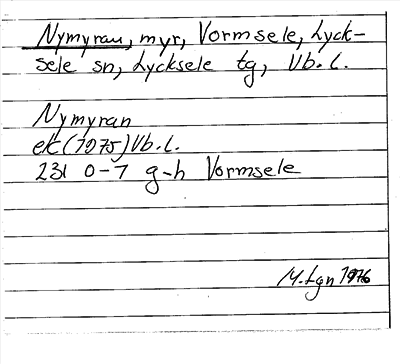 Nymyran, myr, Vormsele, Lyck-
sele sn, Lycksele tg, Vb.l.
Nymyran
ek (1975) Vb.l.
231 0-7 g-h Vormsele
M. Lgn 1976